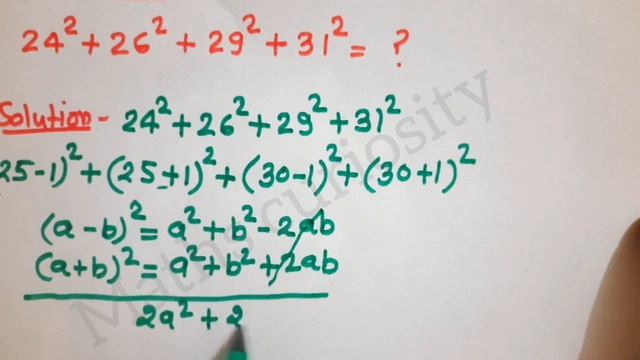 24² + 26² + 29² + 31² = ?
Solution - 24² + 26² + 29² + 31²
25-1)² + (25+1)² + (30-1)² + (30+1)²
(a-b)² = a² + b² - 2ab
(a+b)² = a² + b² + 2ab
2a² + 2
Maths curiosity